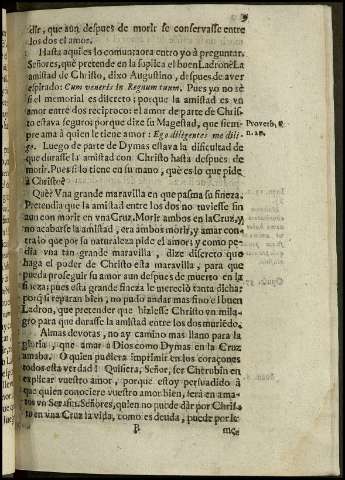 dir, que aun despues de morir se conservasse entre
los dos el amor.
Hasta aqui es lo comun: aora entro yo à preguntar.
Señores, què pretende en la suplica el buen Ladron? La
amistad de Christo, dixo Augustino, despues de aver
espirado: Cum veneris in Regnum tuum. Pues yo no sè
si el memorial es discreto; porque la amistad es vn
amor entre dos reciproco: el amor de parte de Chris-
to estava seguro; porque dize su Magestad, que siem-
pre ama à quien le tiene amor: Ego diligentes me dili-
go. Luego de parte de Dymas estava la dificultad de
que durasse la amistad con Christo hasta despues de
morir. Pues si lo tiene en su mano, què es lo que pide
à Christo?
Què? Vna grande maravilla en que pasma su fineza.
Pretendia que la amistad entre los dos no tuviesse fin
aun con morir en vna Cruz. Morir ambos en la Cruz, y
no acabarse la amistad, era ambos morir, y amar con-
tra lo que por su naturaleza pide el amor; y como pe-
dia vna tan grande maravilla, dize discreto que
haga el poder de Christo esta maravilla, para que
pueda proseguir su amor aun despues de muerto en la
fineza; pues esta grande fineza le mereciò tanta dicha:
porq̃ si reparan bien, no pudo andar mas fino el buen
Ladron, que pretender que hiziesse Christo vn mila-
gro para que durasse la amistad entre los dos muriẽdo.
Almas devotas, no ay camino mas llano para la
gloria, que amar à Dios como Dymas en la Cruz
amaba. O quien pudiera imprimir en los coraçones
todos esta verdad! Quisiera, Señor, ser Cherubin en
explicar vuestro amor, porque estoy persuadido à
que quien conociere vuestro amor bien, serà en ama-
ros vn Serafin. Señores, quien no puede dàr por Chris-
to en vna Cruz la vida, como es deuda, puede por lo
P me-
Proverb. 8.
n. 17.